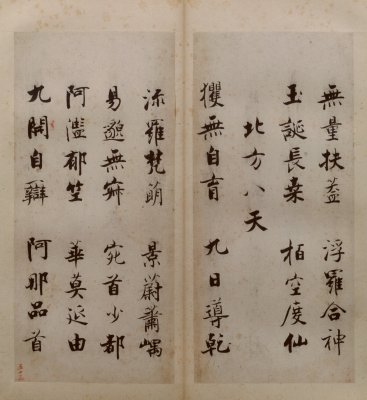 無量扶蓋 浮羅合神
玉誕長桒 栢空度仙
北方八天
玃無自育 九日導乾
流羅梵萌 景蔚蕭嵎
易邈無寂 宛首少都
阿濫郁竺 華莫延由
九開自辯 阿那品首